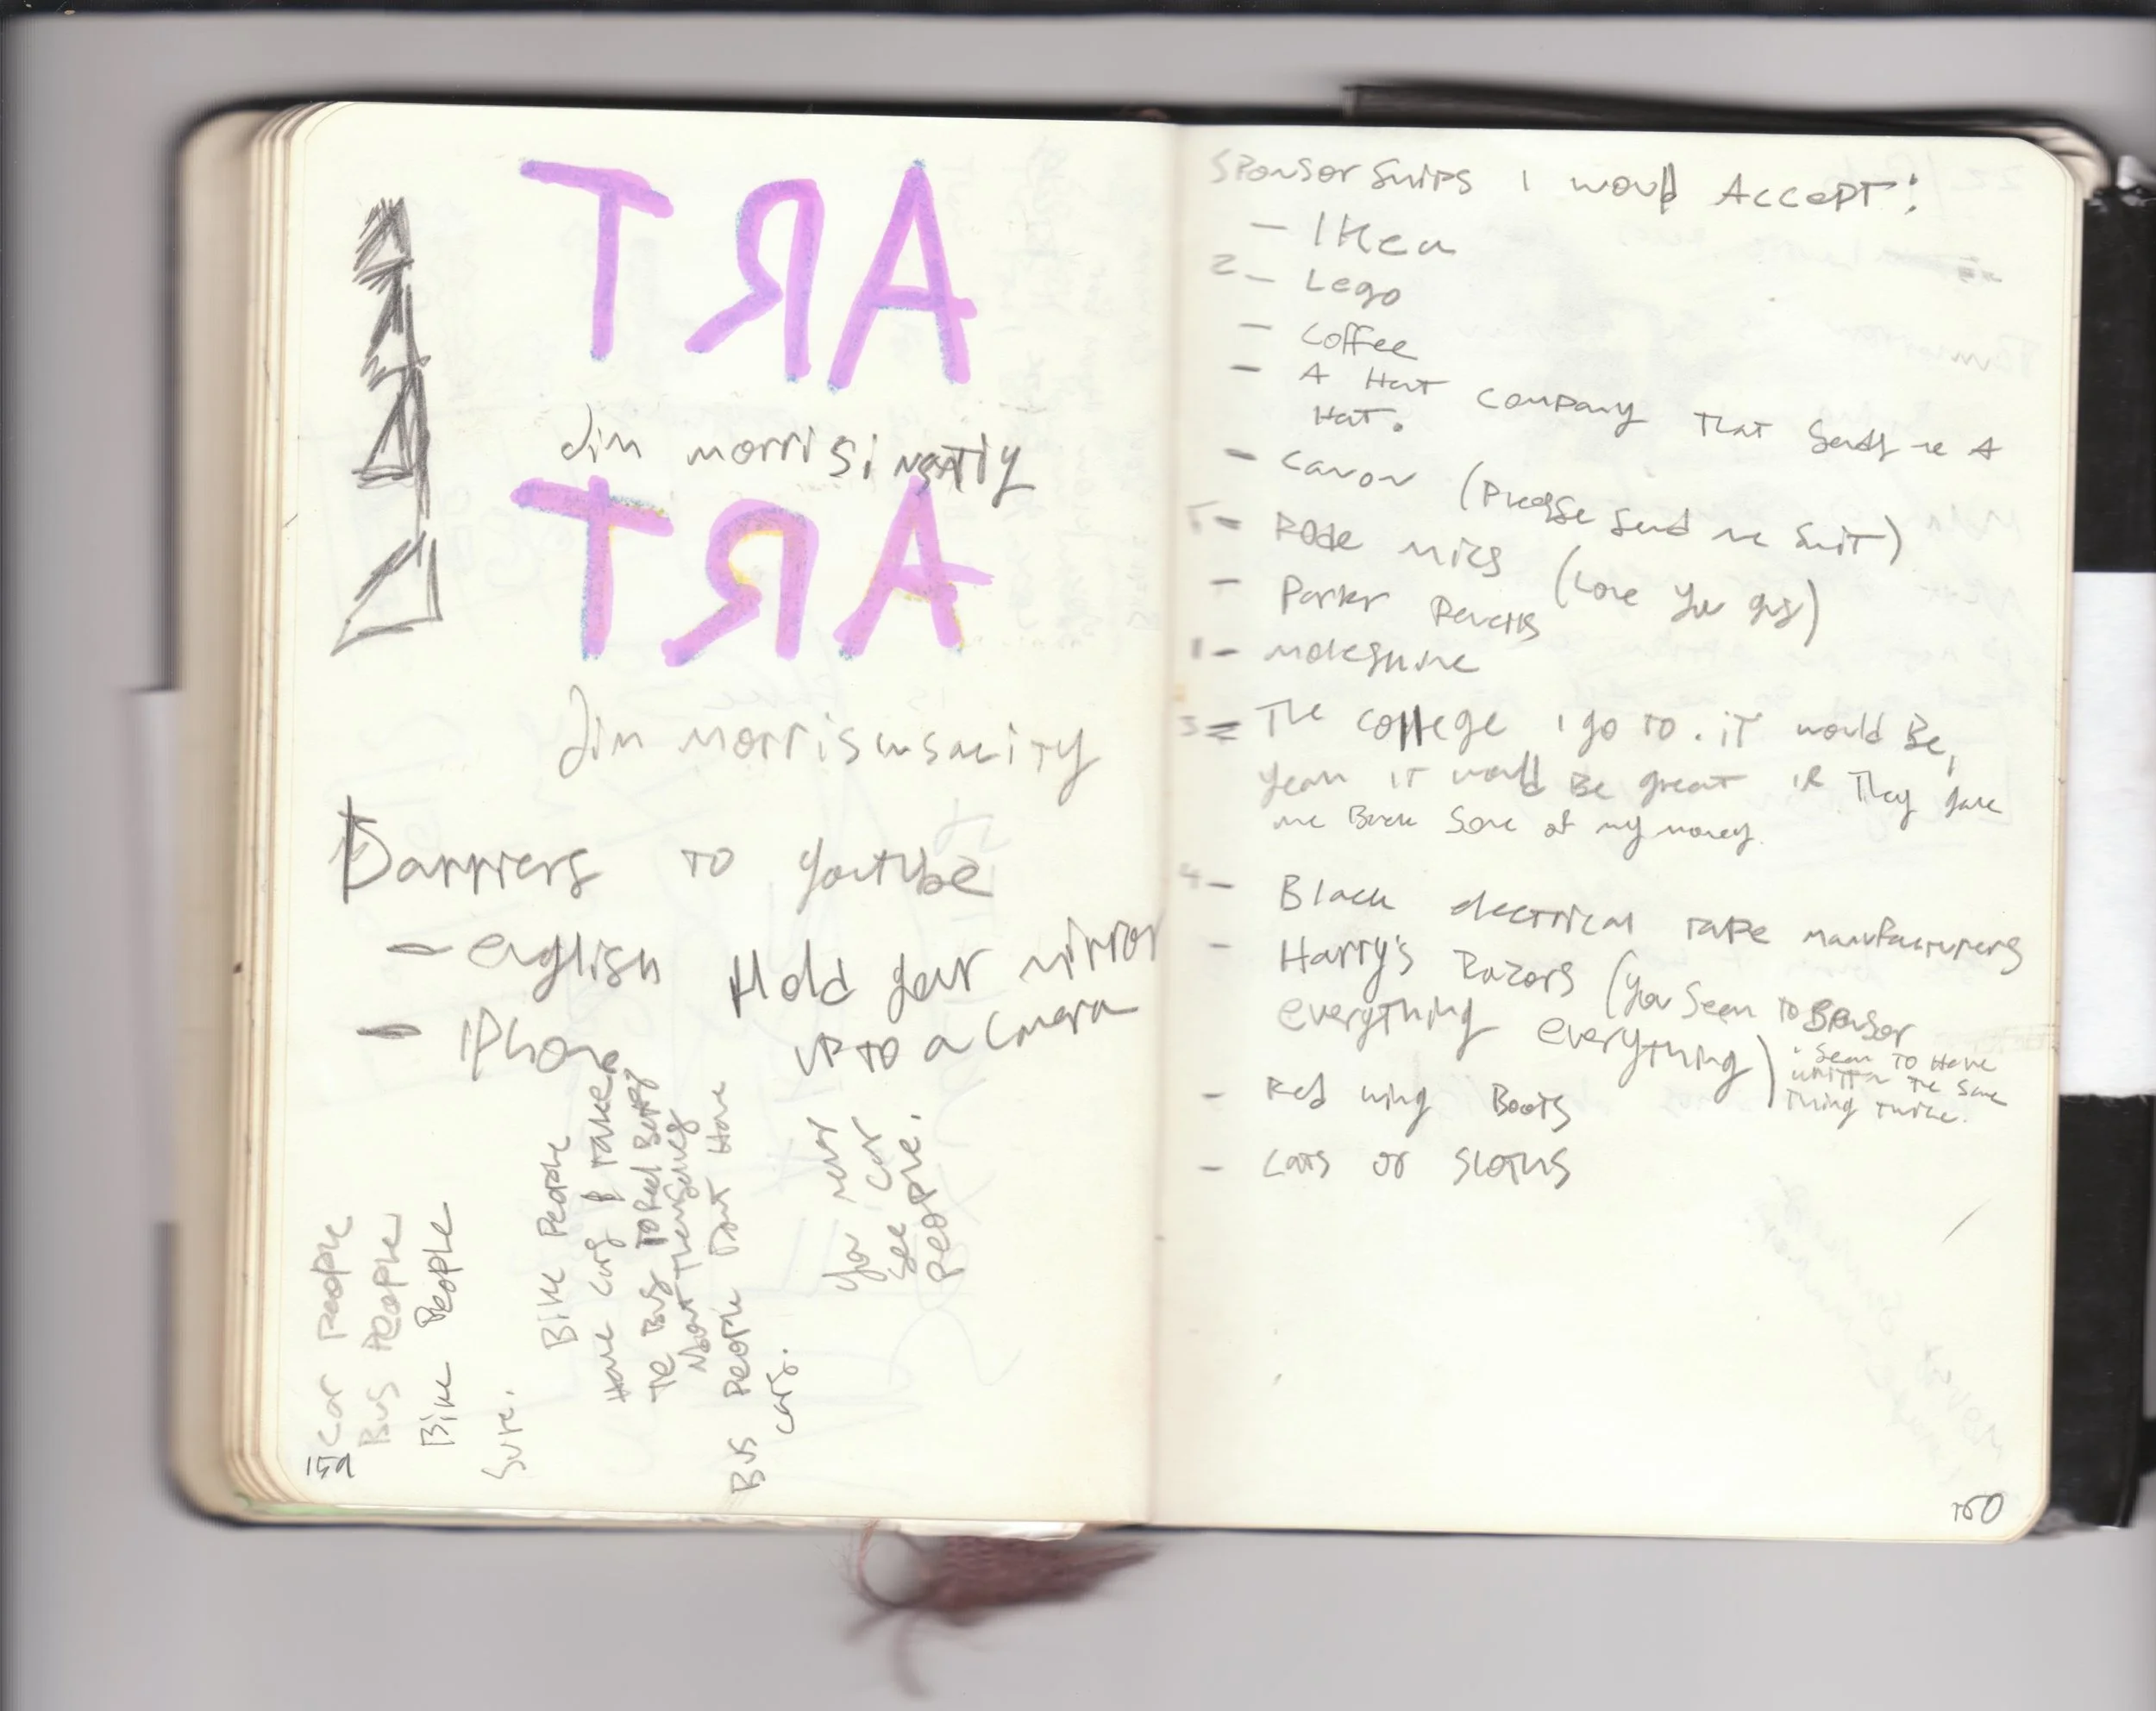 TЯA
Jim morrisinsatiy
TЯA
Jim morrisinsanity
Barriers to Youtube
- english
- iPhone
Hold your mirror
up to a camera
Car People
Bus People
Bike People
Sure.
Bike People
Have cars & take
the Bus to feel Better
About themselves
Bus People Dont Have
cars.
You never
see car
people.
159
Sponsorships I would Accept:
- Ikea
2 - Lego
- Coffee
- A Hat company that sends me A
Hat.
- Canon (Please send me shit)
5 - Rode mics (Love you guys)
- Parker Pencils
1 - moleskine
3 - The college I go to. it would Be,
yeah it would Be great if They gave
me Back some of my money.
4 - Black electrical tape manufacturers
- Harry's Razors (you seem to sponsor
everything everything)
i seem to have
written the same
thing twice.
- Red wing Boots
- Cats or Sloths
160